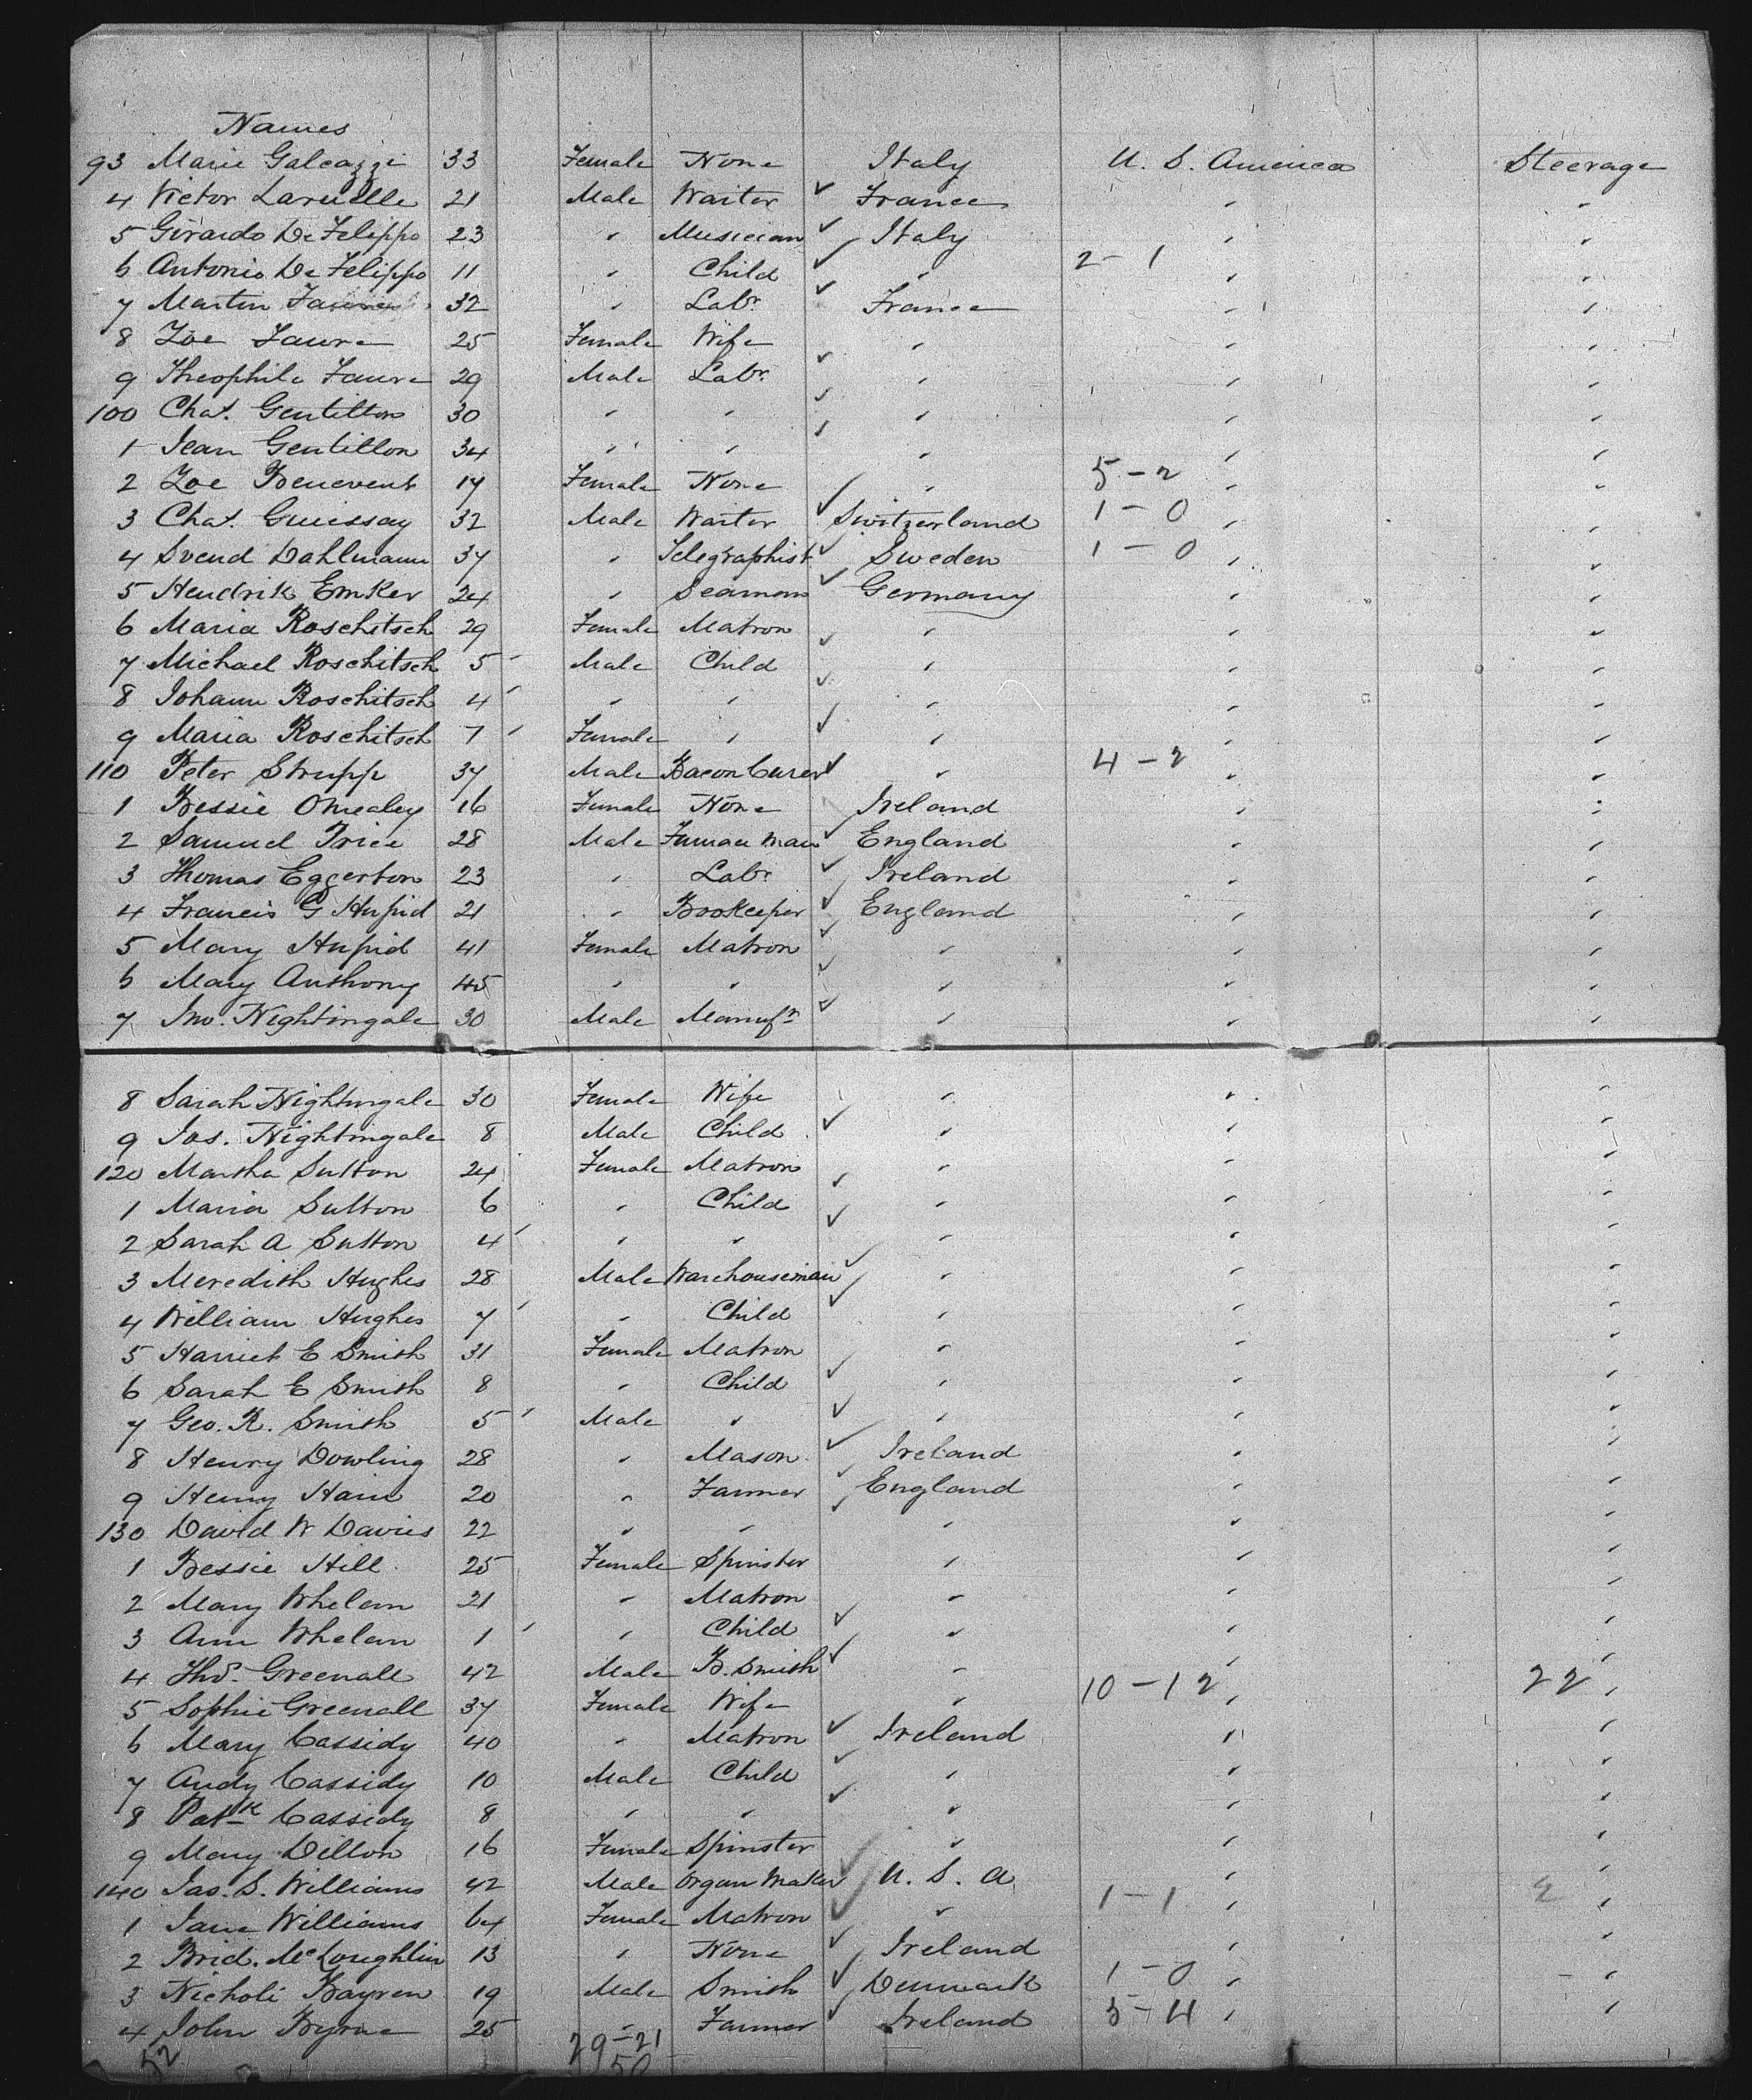 Names
93 Marie Galeazzi 33 Female None Italy U. S. America Steerage
4 Victor Laruelle 21 Male Waiter ✓ France " "
5 Girardo De Felippo 23 " Musician ✓ Italy " "
6 Antonio De Felippo 11 " Child ✓ " 2-1 " "
7 Martin Faure 32 " Labr ✓ France " "
8 Zoe Faure 25 Female Wife " " "
9 Theophile Faure 29 Male Labr ✓ " " "
100 Chas. Gentillon 30 " " ✓ " " "
1 Jean Gentillon 34 " " ✓ " " "
2 Zoe Benevent 17 Female None " 5-2 " "
3 Chas. Guissay 32 Male Waiter ✓ Switzerland 1-0 " "
4 Svend Dahlmann 37 " Telegraphist ✓ Sweden 1-0 " "
5 Hendrik Emker 24 " Seaman ✓ Germany " "
6 Maria Roschitsch 29 Female Matron " " "
7 Michael Roschitsch 5 Male Child ✓ " " "
8 Johann Roschitsch 4 " " ✓ " " "
9 Maria Roschitsch 7 Female " ✓ " " "
110 Peter Strupp 37 Male Bacon Curer ✓ " 4-2 " "
1 Bessie Omealey 16 Female None Ireland " "
2 Samuel Price 28 Male Furnace Man ✓ England " "
3 Thomas Eggerton 23 " Labr ✓ Ireland " "
4 Francis G Stupid 21 " Bookeeper ✓ England " "
5 Mary Stupid 41 Female Matron ✓ " " "
6 Mary Anthony 45 " " ✓ " " "
7 Jno. Nightingale 30 Male Manufr ✓ " " "
8 Sarah Nightingale 30 Female Wife " " "
9 Jas. Nightingale 8 Male Child ✓ " " "
120 Martha Sutton 24 Female Matron " " "
1 Maria Sutton 6 " Child ✓ " " "
2 Sarah A Sutton 4 " " ✓ " " "
3 Meredith Hughes 28 Male Warehouseman ✓ " " "
4 William Hughes 7 " Child ✓ " " "
5 Harriet E Smith 31 Female Matron " " "
6 Sarah E Smith 8 " Child ✓ " " "
7 Geo. R. Smith 5 Male " ✓ " " "
8 Henry Dowling 28 " Mason ✓ Ireland " "
9 Henry Ham 20 " Farmer ✓ England " "
130 David W Davies 22 " " ✓ " " "
1 Bessie Hill 25 Female Spinster " " "
2 Mary Whelan 21 " Matron " " "
3 Ann Whelan 1 " Child ✓ " " "
4 Thos. Greenall 42 Male B. Smith ✓ " " "
5 Sophie Greenall 37 Female Wife " 10-12 " 22 "
6 Mary Cassidy 40 " Matron ✓ Ireland " "
7 Andy Cassidy 10 Male Child ✓ " " "
8 Patk Cassidy 8 " " ✓ " " "
9 Mary Dillon 16 Female Spinster " " "
140 Jas. S. Williams 42 Male Organ Maker ✓ U. S. A " "
1 Jane Williams 64 Female Matron ✓ " 1-1 " 2 "
2 Brid. McLoughlin 13 " None ✓ Ireland " "
3 Nicholi Bayren 19 Male Smith ✓ Denmark 1-0 " "
4 John Byrne 25 " Farmer ✓ Ireland 3-4 " "
52 29-21
50